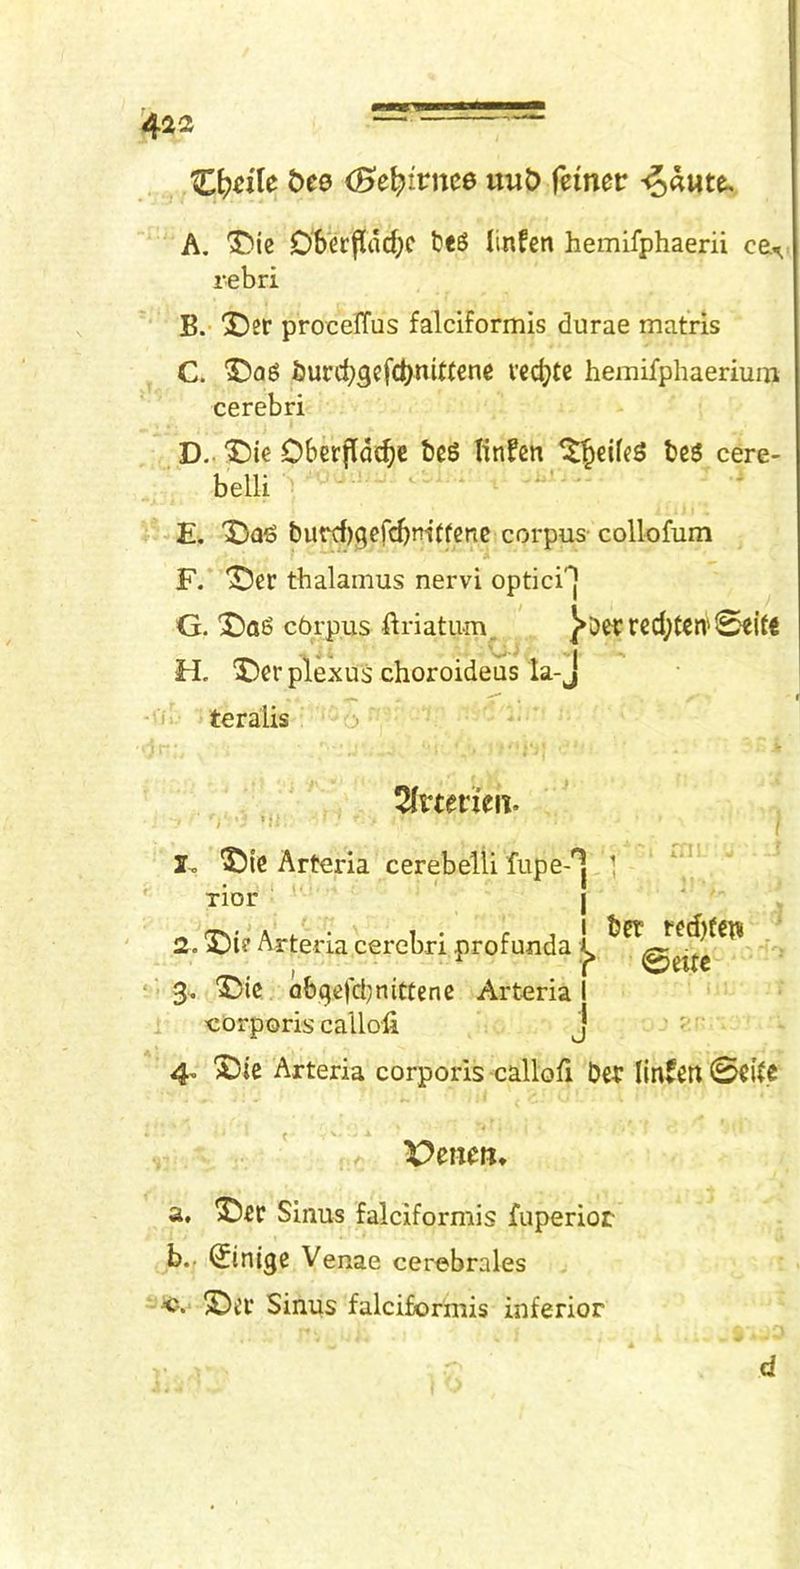 422
Theile des Gehirnes und seiner Häute.
A. Die Oberfläche des linken hemiſphaerii ce-
rebri
B. Der proceſſus falciformis durae matris
C. Das durchgeſchnittene rechte hemiſphaerium
cerebri
D. Die Oberfläche des linken Theiles des cere-
belli
E. Das durchgeſchnittene corpus colloſum
F. Der thalamus nervi optici
G. Das corpus ſtriatum } der rechten Seite
H. Der plexus choroideus la-
teralis
Arterien.
1. Die Arteria cerebelli ſupe-
rior
2. Die Arteria cerebri profunda } der rechten Seite
3. Die abgeſchnittene Arteria
corporis calloſi
4. Die Arteria corporis calloſi der linken Seite
Venen.
a. Der Sinus falciformis ſuperior
b. Einige Venae cerebrales
c. Der Sinus falciformis inferior
d